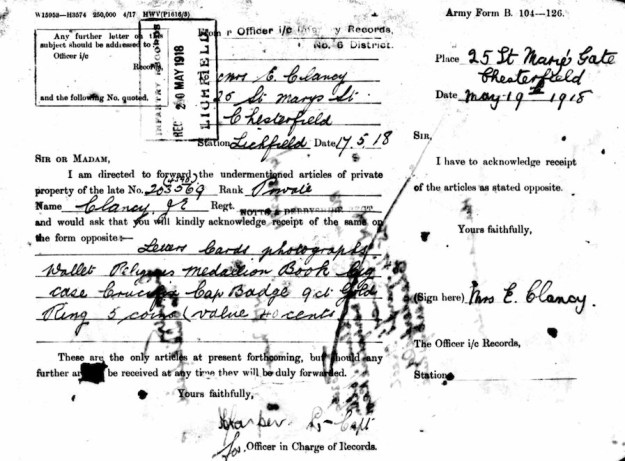 W15959—H3574 250,000 4/17 HWV(P1616/3)
Army Form B. 104—126.
Any further letter on this
subject should be addressed to:—
Officer i/c
Records,
and the following No. quoted.
INFANTRY RECORDS
REC 20 MAY 1918
LICHFIELD
Officer i/c Records,
No. 6 District.
Mrs E. Clancy
25 St Marys St.
Chesterfield
Station Lichfield Date 17.5.18
SIR OR MADAM,
I am directed to forward the undermentioned articles of private
property of the late No. 203569 Rank Private
Name Clancy J E Regt.
and would ask that you will kindly acknowledge receipt of the same on
the form opposite:—
Letters Cards photographs
Wallet Religious medallion Book Cig
case Crucifix Cap Badge 9 ct Gold
Ring 5 coins (value 40 cents)
These are the only articles at present forthcoming, but should any
further be received at any time they will be duly forwarded.
Yours faithfully,
Harper Lt-Capt
for Officer in Charge of Records.
Place 25 St Mary's Gate
Chesterfield
Date May 19th 1918
SIR,
I have to acknowledge receipt
of the articles as stated opposite.
Yours faithfully,
(Sign here) Mrs E. Clancy.
The Officer i/c Records,
Station